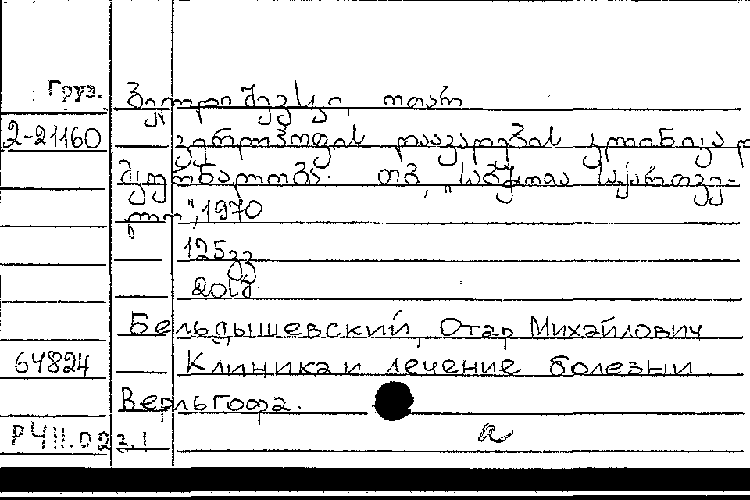 Груз.
ოთარ
2-21160 ვერლჰოფის დაავადების კლინიკა დ
მკურნალობა. თბ., "საბჭოთა საქართვე-
ლო", 1970
125გვ
Бельдышевский, Отар Михайлович
64824 Клиника и лечение болезни
Верльгофа.